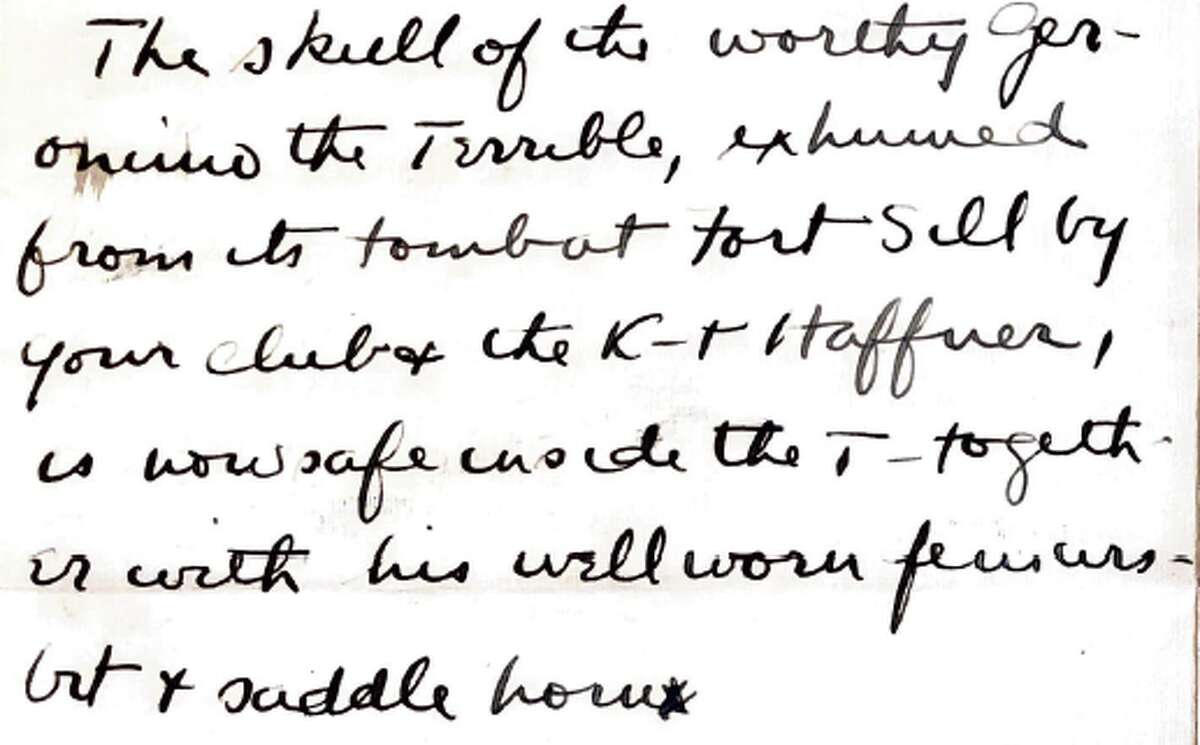 The skull of the worthy Ger-
onimo the Terrible, exhumed
from its tomb at Fort Sill by
your club & the K-t Haffner,
is now safe inside the T-togeth
er with his well worn femurs-
bit & saddle horn